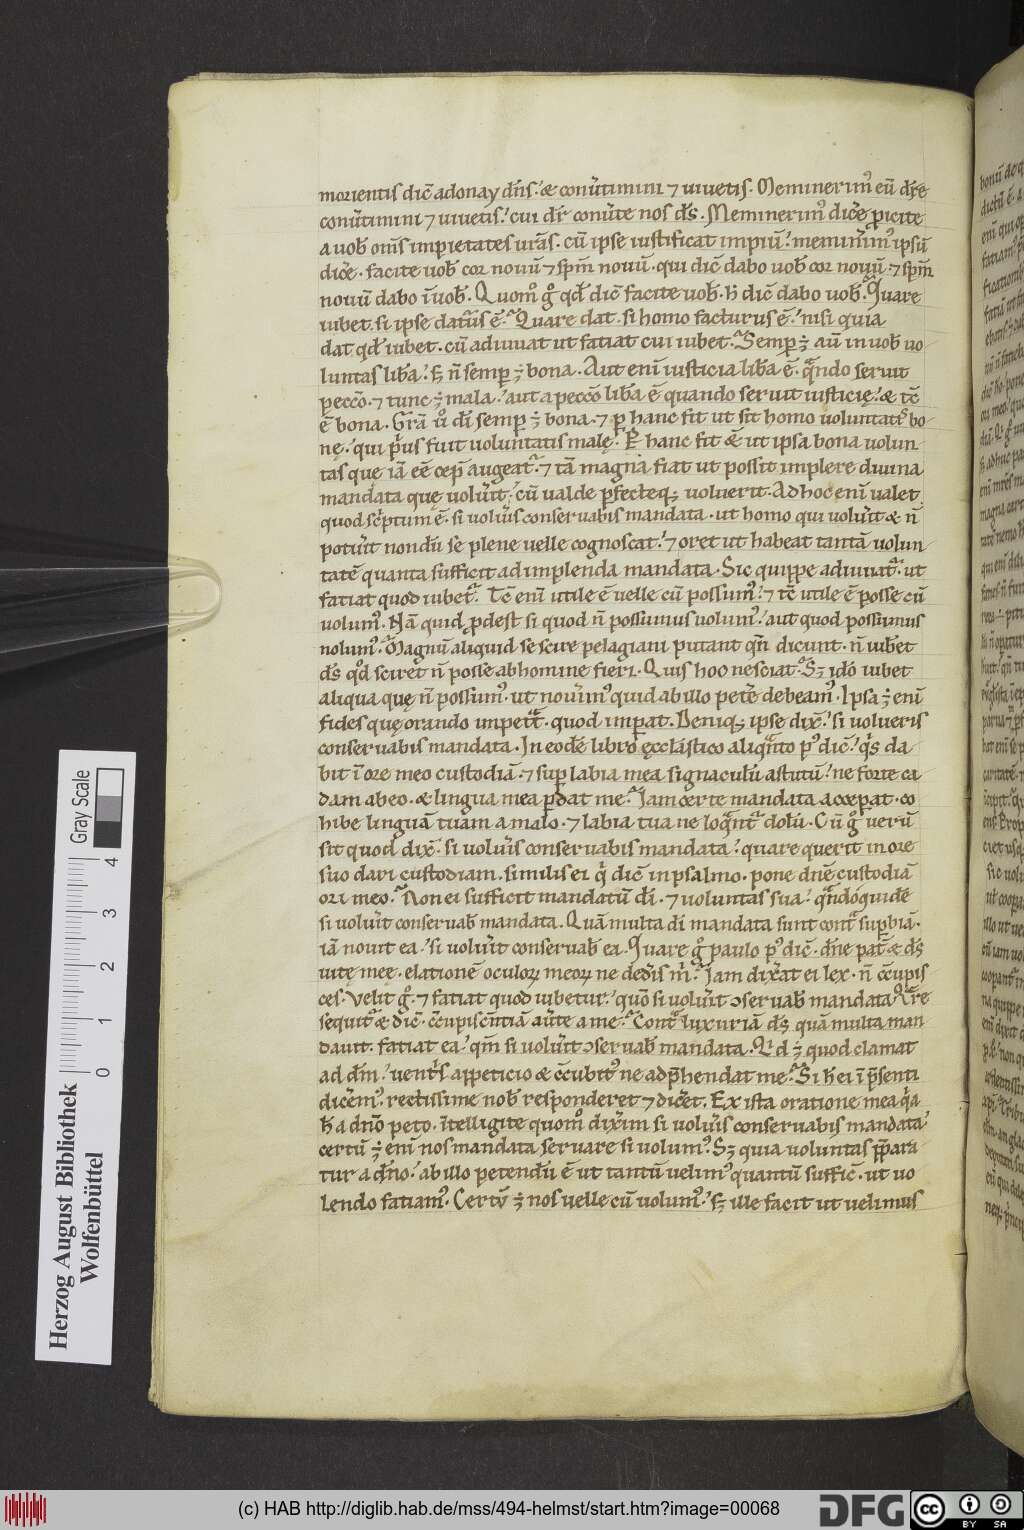 morientis dic̄ adonay dn̄s. & conu̓timini ⁊ uiuetis. Meminerim᷒ eū dic̓e
conu̓timini ⁊ uiuetis. cui dr̄ conu̓te nos ds̄. Meminerim᷒ dic̓e ꝓicite
a uob̄ om̄s impietates urās. cū ipse iustificat impiū. memin̓im᷒ ipsū
dic̓e. facite uob̄ cor nouū ⁊ spm̄ nouū. qui dic̄ dabo uob̄ cor nouū ⁊ spm̄
nouū dabo ī uob̄. Quom̊ g̊ qd̄ dic̄ facite uob̄. h̄ dic̄ dabo uob̄. Quare
iubet si ipse datur̓us ē. Quare dat si homo facturus ē. nisi quia
dat qd̄ iubet. cū adiuuat ut fatiat cui iubet. Semꝑ ÷ aū in uob̄ uo
luntas lib̓a. sꝫ n̄ semꝑ ÷ bona. Aut enī iusticia lib̓a ē. qᵃndo seruit
pecc̄o. ⁊ tunc ÷ mala. aut a pecc̄o lib̓a ē quando seruit iusticię. & tc̄
ē bona. Grā ů dī semꝑ ÷ bona. ⁊ ꝑ hanc fit ut sit homo uoluntatⁱs bo
nę. qui pⁱus fuit uoluntatis malę. Ꝑ hanc fit & ut ipsa bona uolun
tas quę iā eē cep̄ augeat᷑. ⁊ tā magna fiat ut possit implere diuina
mandata quę uolu̓it. cū ualde ꝑfecteqꝫ uoluerit. Ad hoc enī ualet
quod scⁱptum ē. si uolu̓is conseruabis mandata. ut homo qui uolu̓it & n̄
potu̓it nondū se plene uelle cognoscat. ⁊ oret ut habeat tantā uolun
tatē quanta sufficit ad implenda mandata. Sic quippe adiuuat᷑ ut
fatiat quod iubet᷑. Tc̄ enī utile ē uelle cū possum᷒. ⁊ tc̄ utile ē posse cū
uolum᷒. Nā quid ꝓdest si quod n̄ possumus uolum᷒. aut quod possumus
nolum᷒. Magnū aliquid se scire pelagiani putant qn̄ dicunt. n̄ iub̓et
ds̄ qd̄ sciret n̄ posse ab homine fieri. Quis hoo nesciat. Sꝫ id̊ó iubet
aliqua quę n̄ possum᷒. ut nou̓im᷒ quid ab illo pet̓e debeam᷒. Ipsa ÷ enī
fides quę orando impet᷑t. quod imꝑat. Deniqꝫ ipse dix̄. si uolueris
conseruabis mandata. In eodē libro ęcclāstico aliqᵃnto p᷒ dic̄. qⁱs da
bit ī ore meo custodiā. ⁊ suꝑ labia mea signaculū astutū. ne forte ca
dam ab eo. & lingua mea ꝑdat me. Iam certe mandata acceꝑat. co
hibe linguā tuam a malo. ⁊ labia tua ne loqᵃnt᷑ dolū. Cū g̊ uerū
sit quod dix̄. si uolu̓is conseruabis mandata. quare querit in ore
suo dari custodiam. similis ei qⁱ dic̄ in psalmo. pone dn̄e custodiā
ori meo. Non ei sufficit mandatū dī. ⁊ uoluntas sua. qn̄doquidē
si uolu̓it conseruab̄ mandata. Quā multa dī mandata sunt contᵃ suꝑbiā.
iā nouit ea. si uolu̓it conseruab̄ ea. Quare g̊ paulo p᷒ dic̄. dn̄e pat̓ & ds̄
uitę meę. elationē oculoꝝ meoꝝ ne ded̓is mⁱ. Iam dix̓at ei lex. n̄ c̄cupis
ces. Velit g̊. ⁊ fatiat quod iubetur. quō si uolu̓it ↄseruab̄ mandata. Qᵃre
sequit᷑ & dic̄. c̄cupiscn̄tiā aufte a me. Contᵃ luxuriā ds̄ quā multa man
dauit. fatiat ea. qm̄ si uolu̓it ↄseruab̄ mandata. Qⁱd ÷ quod clamat
ad dm̄. uentⁱs appeticio & c̄cubit᷒ ne adp̄hendat me. Si h̄ ei ī p̄senti
dic̓em᷒. rectissime nob̄ responderet ⁊ dic̓et. Ex ista oratione mea qᵃ
h̄ a dn̄o peto. īteligite quom̊ dix̓im si uolu̓is conseruabis mandata.
certū ÷ enī nos mandata seruare si uolum᷒. Sꝫ quia uoluntas p̄para
tur a dn̄o. ab illo petendū ē ut tantū uelim᷒ quantū suffic̄. ut uo
lendo fatiam᷒. Certū ÷ nos uelle cū uolum᷒. sꝫ ille facit ut uelimus
Herzog August Bibliothek
Wolfenbüttel
Gray Scale
0 1 2 3 4
(c) HAB http://diglib.hab.de/mss/494-helmst/start.htm?image=00068
DFG
cc BY SA